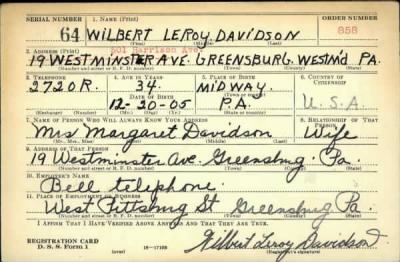 SERIAL NUMBER 1. NAME (Print) ORDER NUMBER
64 WILBERT LEROY DAVIDSON 858
(First) (Middle) (Last)
2. ADDRESS (Print) 501 Harrison Ave.
19 WESTMINSTER AVE. GREENSBURG. WESTM'D PA.
(Number and street or R. F. D. number) (Town) (County) (State)
3. TELEPHONE 4. AGE IN YEARS 5. PLACE OF BIRTH 6. COUNTRY OF CITIZENSHIP
2720R. 34. MIDWAY.
DATE OF BIRTH (Town or county)
12-20-05 P.A. U.S.A.
(Exchange) (Number) (Mo.) (Day) (Yr.) (State or country)
7. NAME OF PERSON WHO WILL ALWAYS KNOW YOUR ADDRESS 8. RELATIONSHIP OF THAT PERSON
Mrs Margaret Davidson Wife
(Mr., Mrs., Miss) (First) (Middle) (Last)
9. ADDRESS OF THAT PERSON
19 Westminster Ave. Greensburg. Pa.
(Number and street or R. F. D. number) (Town) (County) (State)
10. EMPLOYER'S NAME
Bell telephone.
11. PLACE OF EMPLOYMENT OR BUSINESS
West Pittsburg St Greensburg Pa.
(Number and street or R. F. D. number) (Town) (County) (State)
I AFFIRM THAT I HAVE VERIFIED ABOVE ANSWERS AND THAT THEY ARE TRUE.
REGISTRATION CARD
D. S. S. Form 1 (over) 16—17105 Wilbert Leroy Davidson
(Registrant's signature)